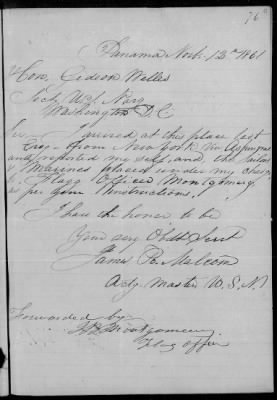 76
Panama Nov. 13th 1861
Hon. Gideon Welles
Secty U.S. Navy
Washington D.C.
Sir, I arrived at this place last
Evg. from New York via Aspinwall
and reported myself, and the sailors
& Marines placed under my charge
to Flag Officer Montgomery,
as per your instructions.
I have the honor to be
Your very Obdt Servt
James R. Malcom
Actg Master U.S.N.
Forwarded by
Montgomery
Flag Officer